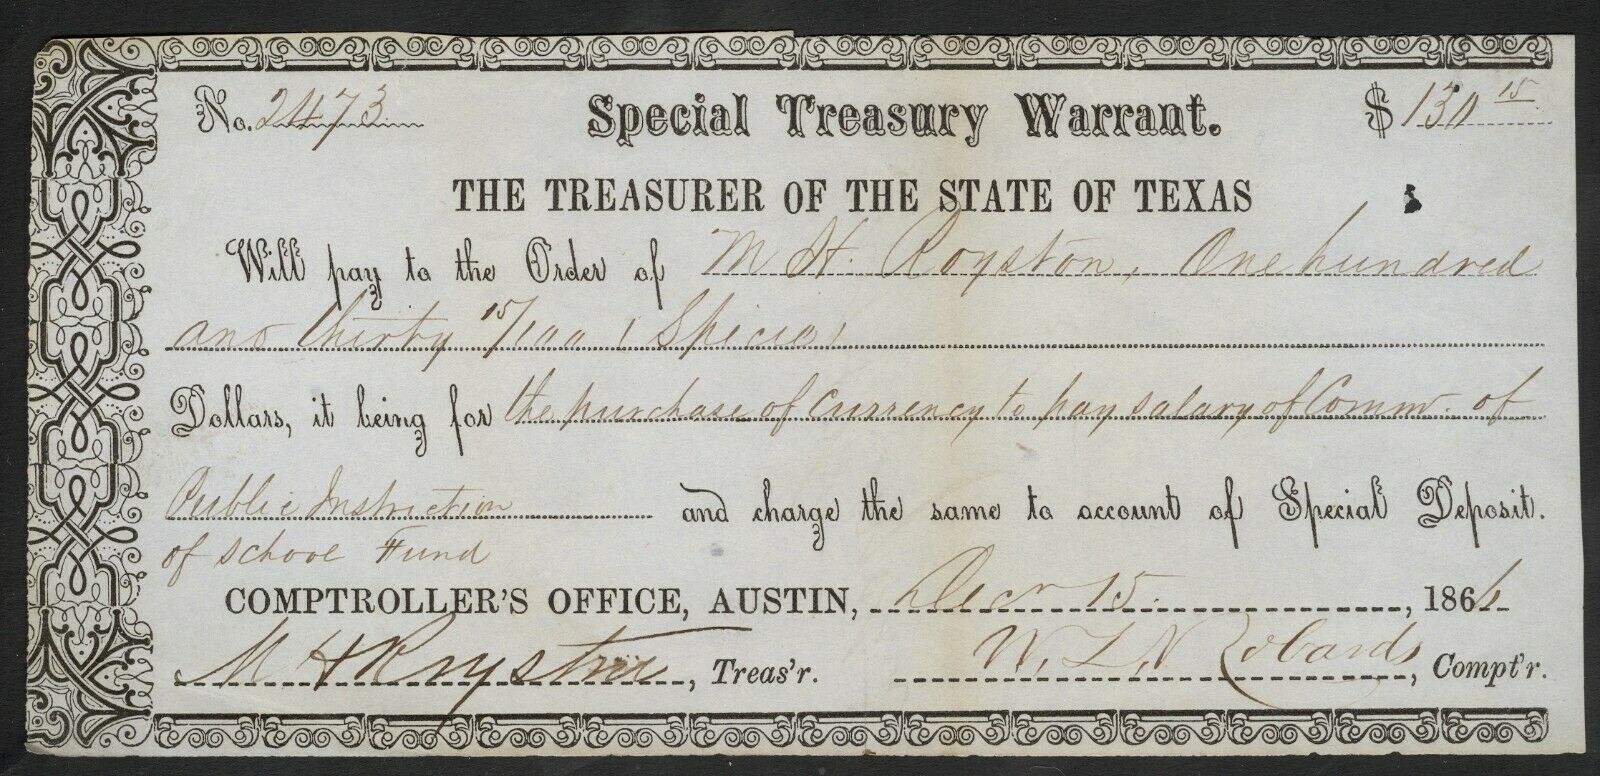 No. 2473 Special Treasury Warrant. $130 15
THE TREASURER OF THE STATE OF TEXAS
Will pay to the Order of M H. Royston, One hundred
and thirty 15/100 (Specie)
Dollars, it being for the purchase of currency to pay salary of Comm. of
Public Instruction and charge the same to account of Special Deposit.
of School Fund
COMPTROLLER'S OFFICE, AUSTIN, Decr 15. , 1866
M H Royston, Treas'r. W. L. N Robards, Compt'r.